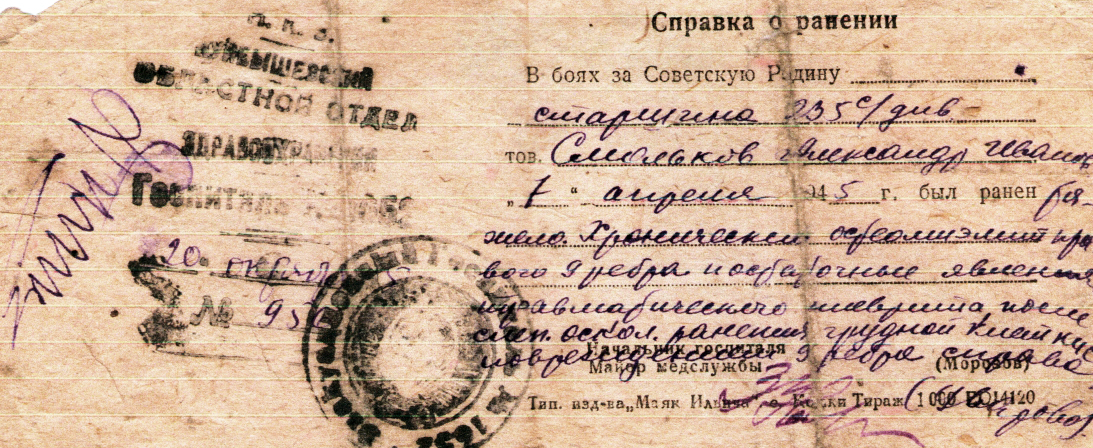 Н. К. З.
КУЙБЫШЕВСКИЙ
ОБЛАСТНОЙ ОТДЕЛ
ЗДРАВООХРАНЕНИЯ
Госпиталь
20. октября 5
№ 93
Справка о ранении
В боях за Советскую Родину
старшина 235 с/див
тов. Смольков Александр Иванов
„7“ апреля 1945 г. был ранен тя-
жело. Хронический остеомиэлит пра
вого 9 ребра и остаточные явления
травматического плеврита после
слеп. оскол. ранения грудной клетки с
повреждением 9 ребра справа
Начальник госпиталя
Майор медслужбы (Морозов)
Тип. изд-ва „Маяк Ильича“ с. Тираж 1000 14120